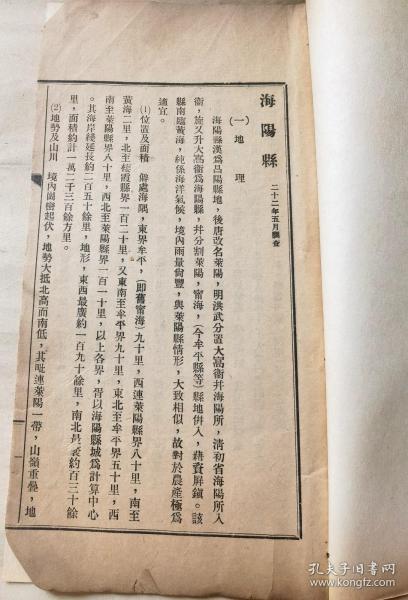 海陽縣
二十二年五月調查
(一)地理
海陽縣漢爲昌陽縣地，後唐改名萊陽，明洪武分置大嵩衞幷海陽所，清初省海陽所入
衞，旋又升大嵩衞爲海陽縣，幷分割萊陽，甯海，(今牟平縣等)縣地併入，藉資屏鎭。該
縣南臨黃海，純係海洋氣候，境內雨量尙豐，與萊陽縣情形，大致相似，故對於農產極爲
適宜。
(1)位置及面積 僻處海隅，東界牟平，(即舊甯海)九十里，西連萊陽縣界八十里，南至
黃海二里，北至棲霞縣界一百二十里，又東南至牟平界九十里，東北至牟平界五十里，西
南至萊陽縣界八十里，西北至萊陽縣界一百一十里，以上各界，胥以海陽縣城爲計算中心
。其海岸綫延長約二百五十餘里，地形，東西最廣約一百九十餘里，南北最袤約百三十餘
里，面積約計一萬二千三百餘方里。
(2)地勢及山川 境內岡巒起伏，地勢大抵北高而南低，其毗連萊陽一帶，山嶺重疊，地
孔夫子旧书网